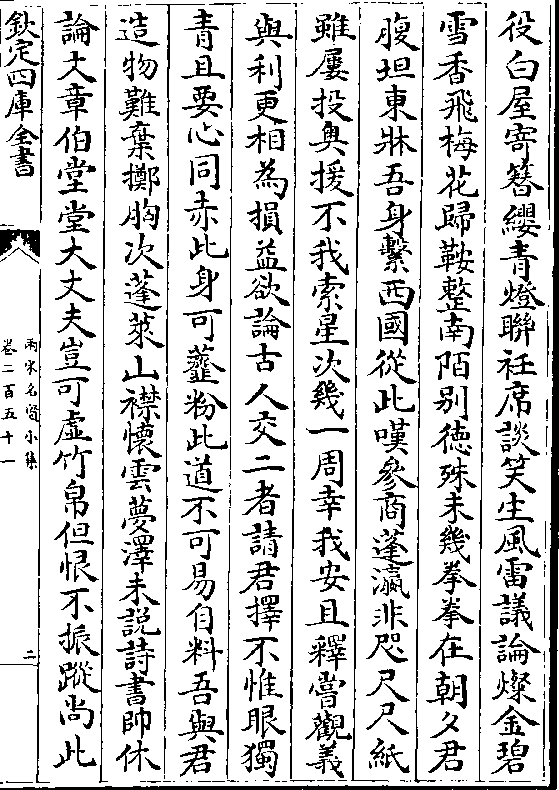 役白屋寄簪纓青燈聯衽席談笑生風雷議論燦金碧
雪香飛梅花歸鞍整南陌别徳殊未幾拳拳在朝夕君
腹坦東牀吾身繫西國從此嘆參商蓬瀛非咫尺尺紙
雖屢投奥援不我索星次幾一周幸我安且釋嘗觀義
與利更相為損益欲論古人交二者請君擇不惟眼獨
青且要心同赤此身可虀粉此道不可易自料吾與君
造物難棄擲胸次蓬萊山襟懷雲夢澤未説詩書帥休
論大章伯堂堂大丈夫豈可虚竹帛但恨不振蹤尚此
欽定四庫全書
兩宋名賢小集
卷二百五十一
二